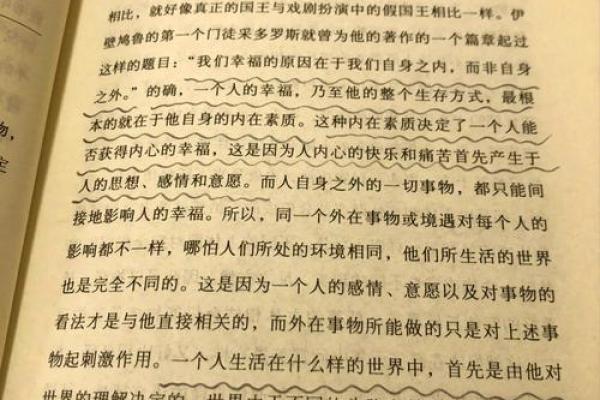 相比，就好像真正的国王与戏剧扮演中的假国王相比一样。伊
壁鸠鲁的第一个门徒采多罗斯就曾为他的著作的一个篇章起过
这样的题目：“我们幸福的原因在于我们自身之内，而非自身
之外。”的确，一个人的幸福，乃至他的整个生存方式，最根
本的就在于他自身的内在素质。这种内在素质决定了一个人能
否获得内心的幸福，这是因为人内心的快乐和痛苦首先产生于
人的思想、感情和意愿。而人自身之外的一切事物，都只能间
接地影响人的幸福。所以，同一个外在事物或境遇对每个人的
影响都不一样，哪怕人们所处的环境相同，他们所生活的世界
也是完全不同的。这是因为一个人的感情、意愿以及对事物的
看法才是与他直接相关的，而外在事物所能做的只是对上述事
物起刺激作用。一个人生活在什么样的世界中，首先是由他对
世界的理解决定的
物，
定